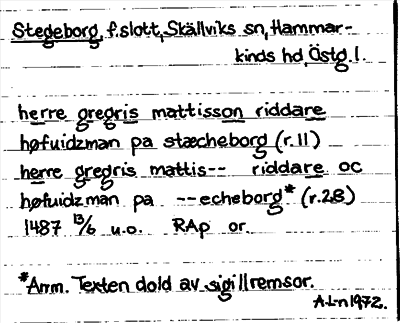 Stegeborg, f.slott, Skällviks sn, Hammar-
kinds hd, Östg. l.
herre gregris mattisson riddare
høfuidzman pa stæcheborg (r.11)
herre gregris mattis-- riddare oc
høfuidzman pa --echeborg* (r.28)
1487 13/6 u.o. RAp or.
*Anm. Texten dold av sigillremsor.
A-Ln 1972.